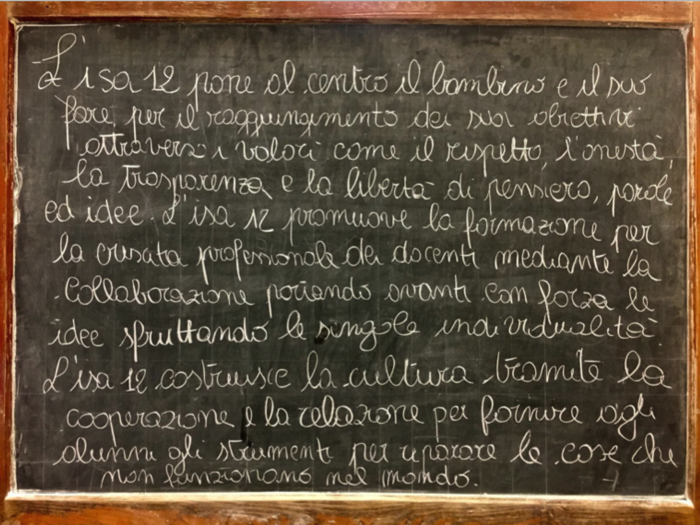 L'isa 12 pone al centro il bambino e il suo
fare per il raggiungimento dei suoi obiettivi
attraverso i valori come il rispetto, l'onestà,
la trasparenza e la libertà di pensiero, parole
ed idee. L'isa 12 promuove la formazione per
la crescita professionale dei docenti mediante la
collaborazione portando avanti con forza le
idee sfruttando le singole individualità.
L'isa 12 costruisce la cultura tramite la
cooperazione e la relazione per fornire agli
alunni gli strumenti per riparare le cose che
non funzionano nel mondo.